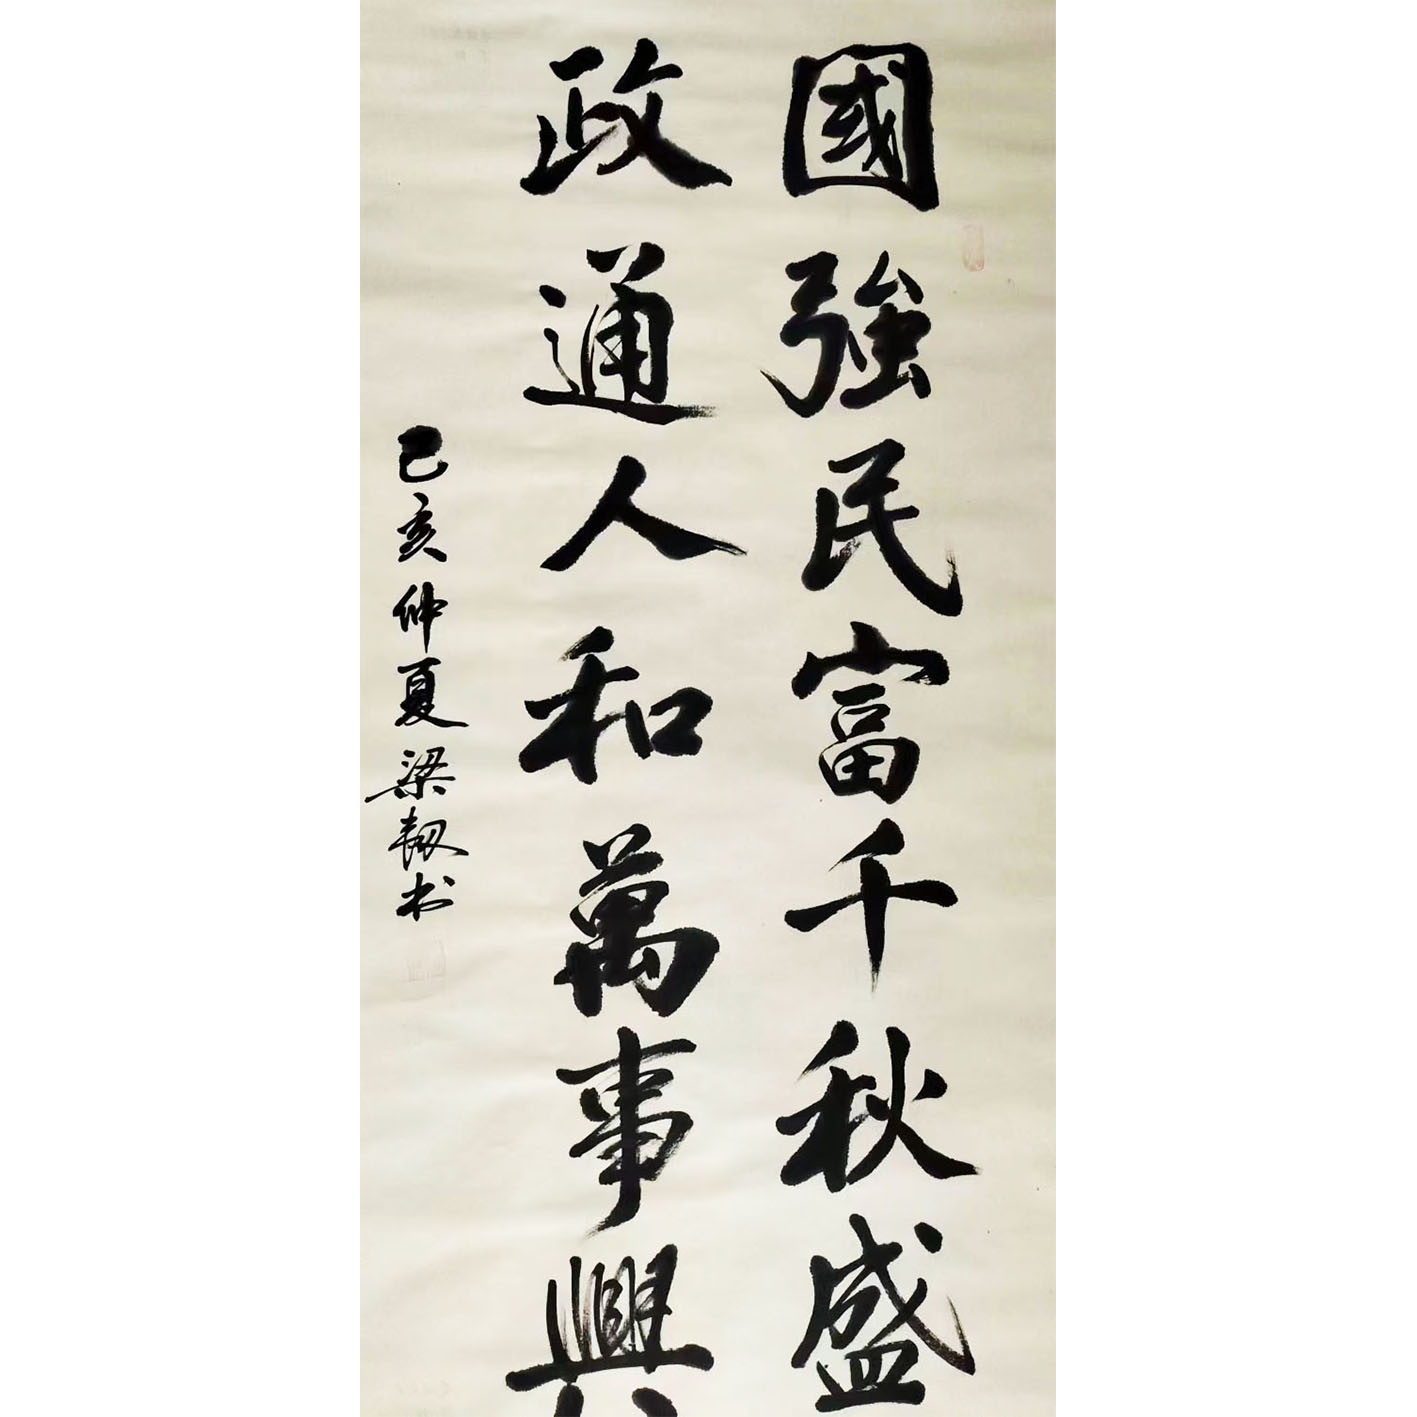 國強民富千秋盛
政通人和萬事興
己亥仲夏梁韌书